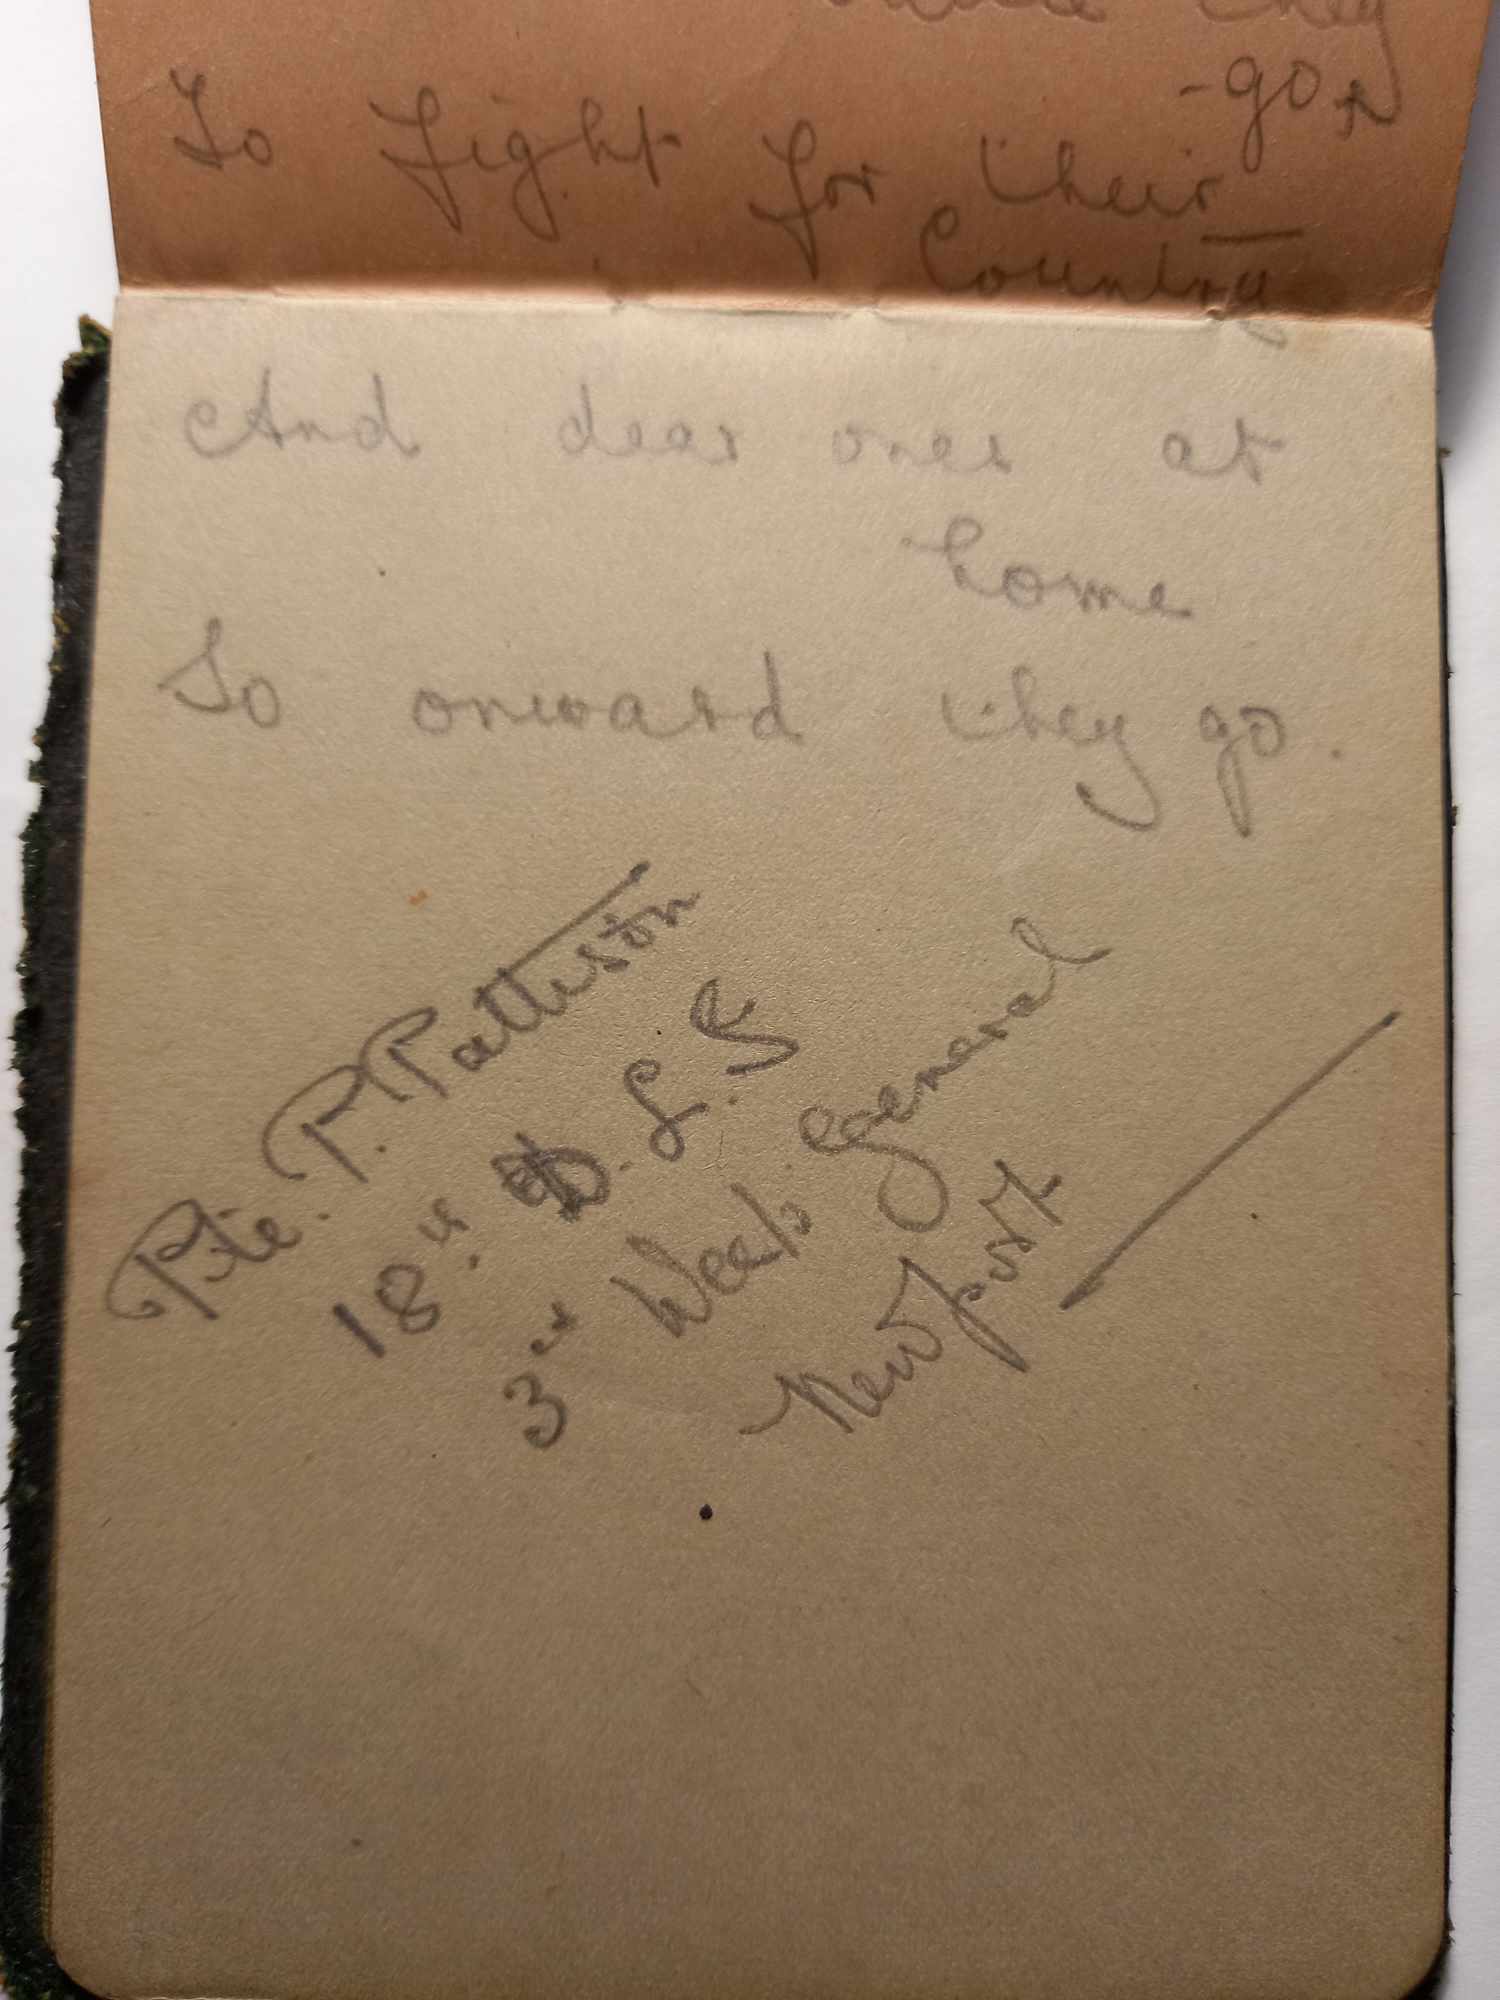 they
-go,
To fight for their
Country
And dear ones at
home
So onward they go.
Pte. P. Pattison
18th D.L.I
3rd West. General
Newport